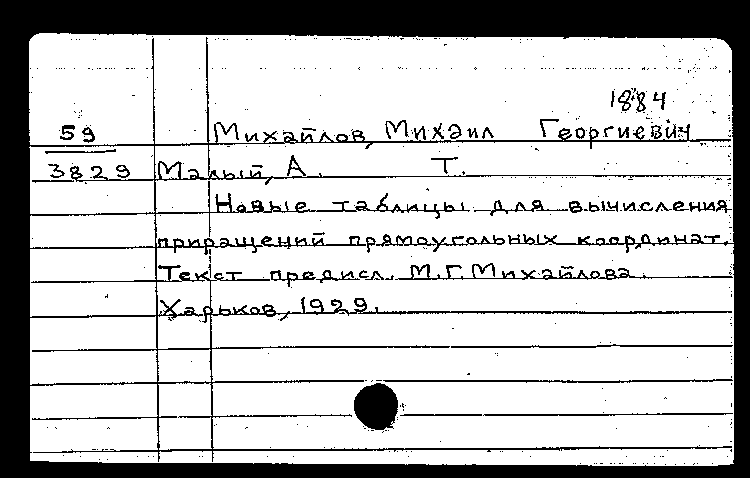 1884
59 Михайлов, Михаил Георгиевич
3829 Малый, А. Т.
Новые таблицы для вычисления
приращений прямоугольных координат.
Текст предисл. М.Г.Михайлова.
Харьков, 1929.